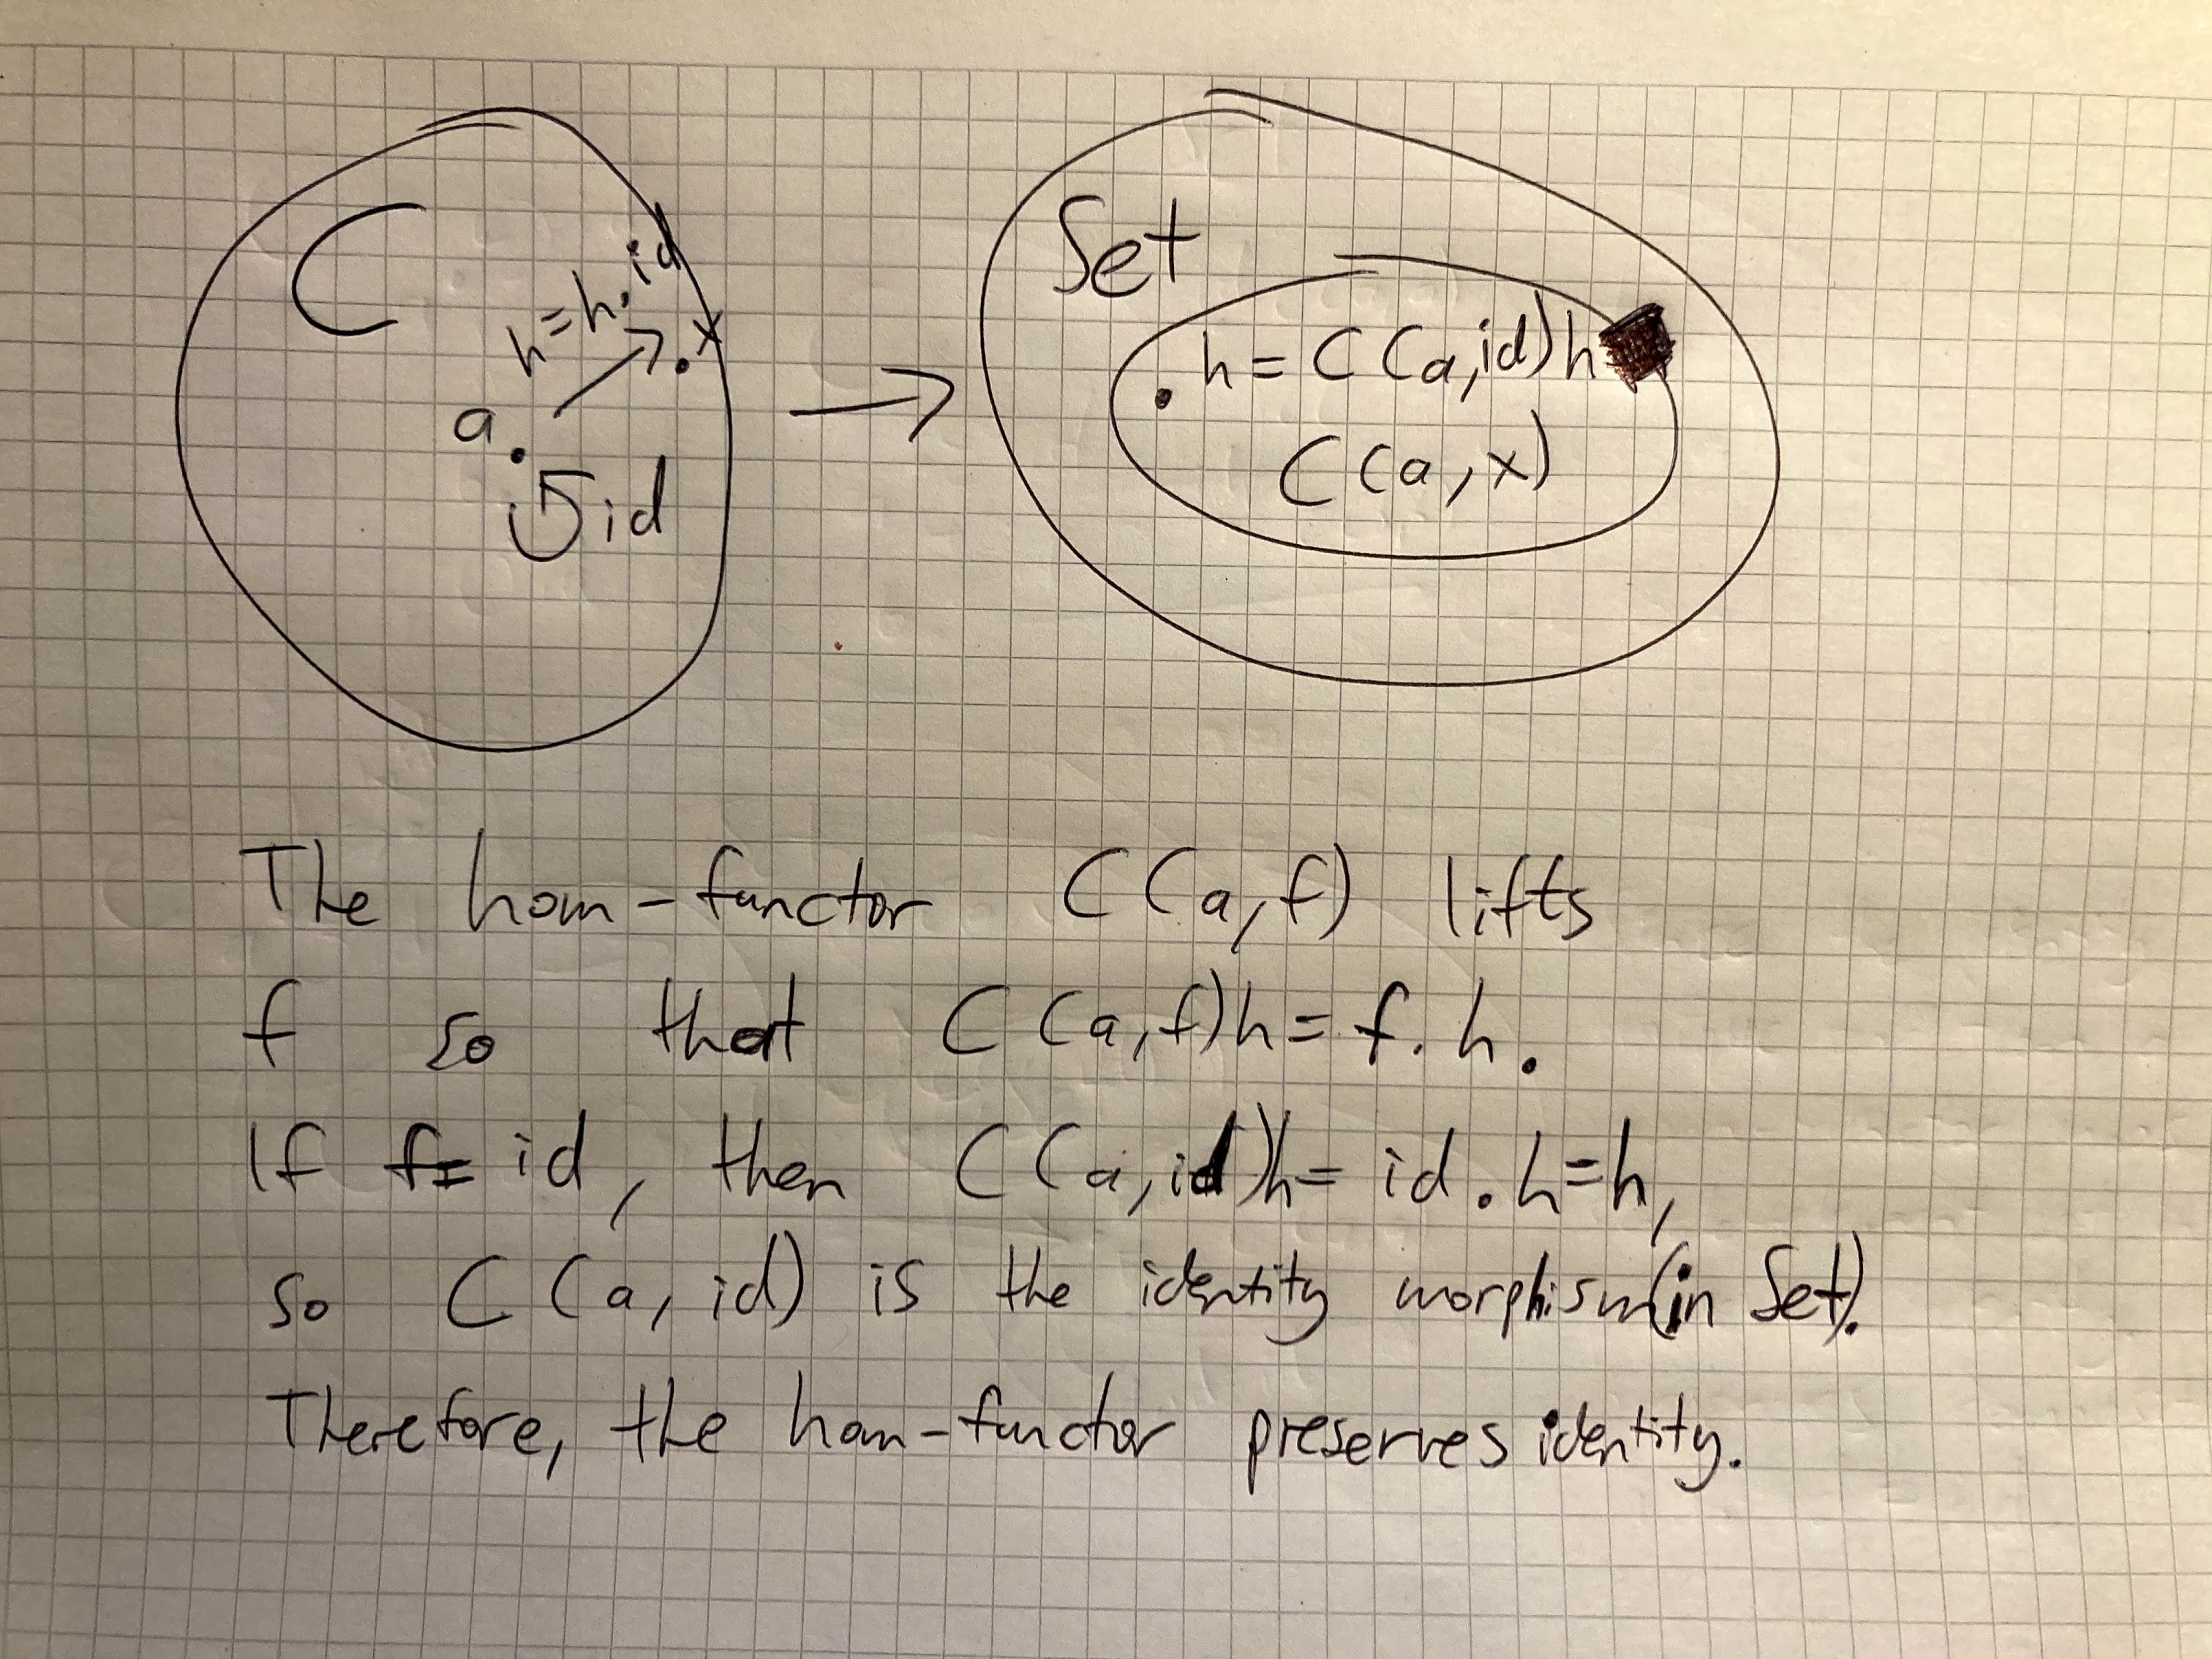 C
h=h.id
x
a
id
Set
h=C(a,id)h
C(a,x)
The hom-functor C(a,f) lifts
f so that C(a,f)h=f.h.
If f=id, then C(a,id)h=id.h=h,
so C(a,id) is the identity morphism(in Set).
Therefore, the hom-functor preserves identity.